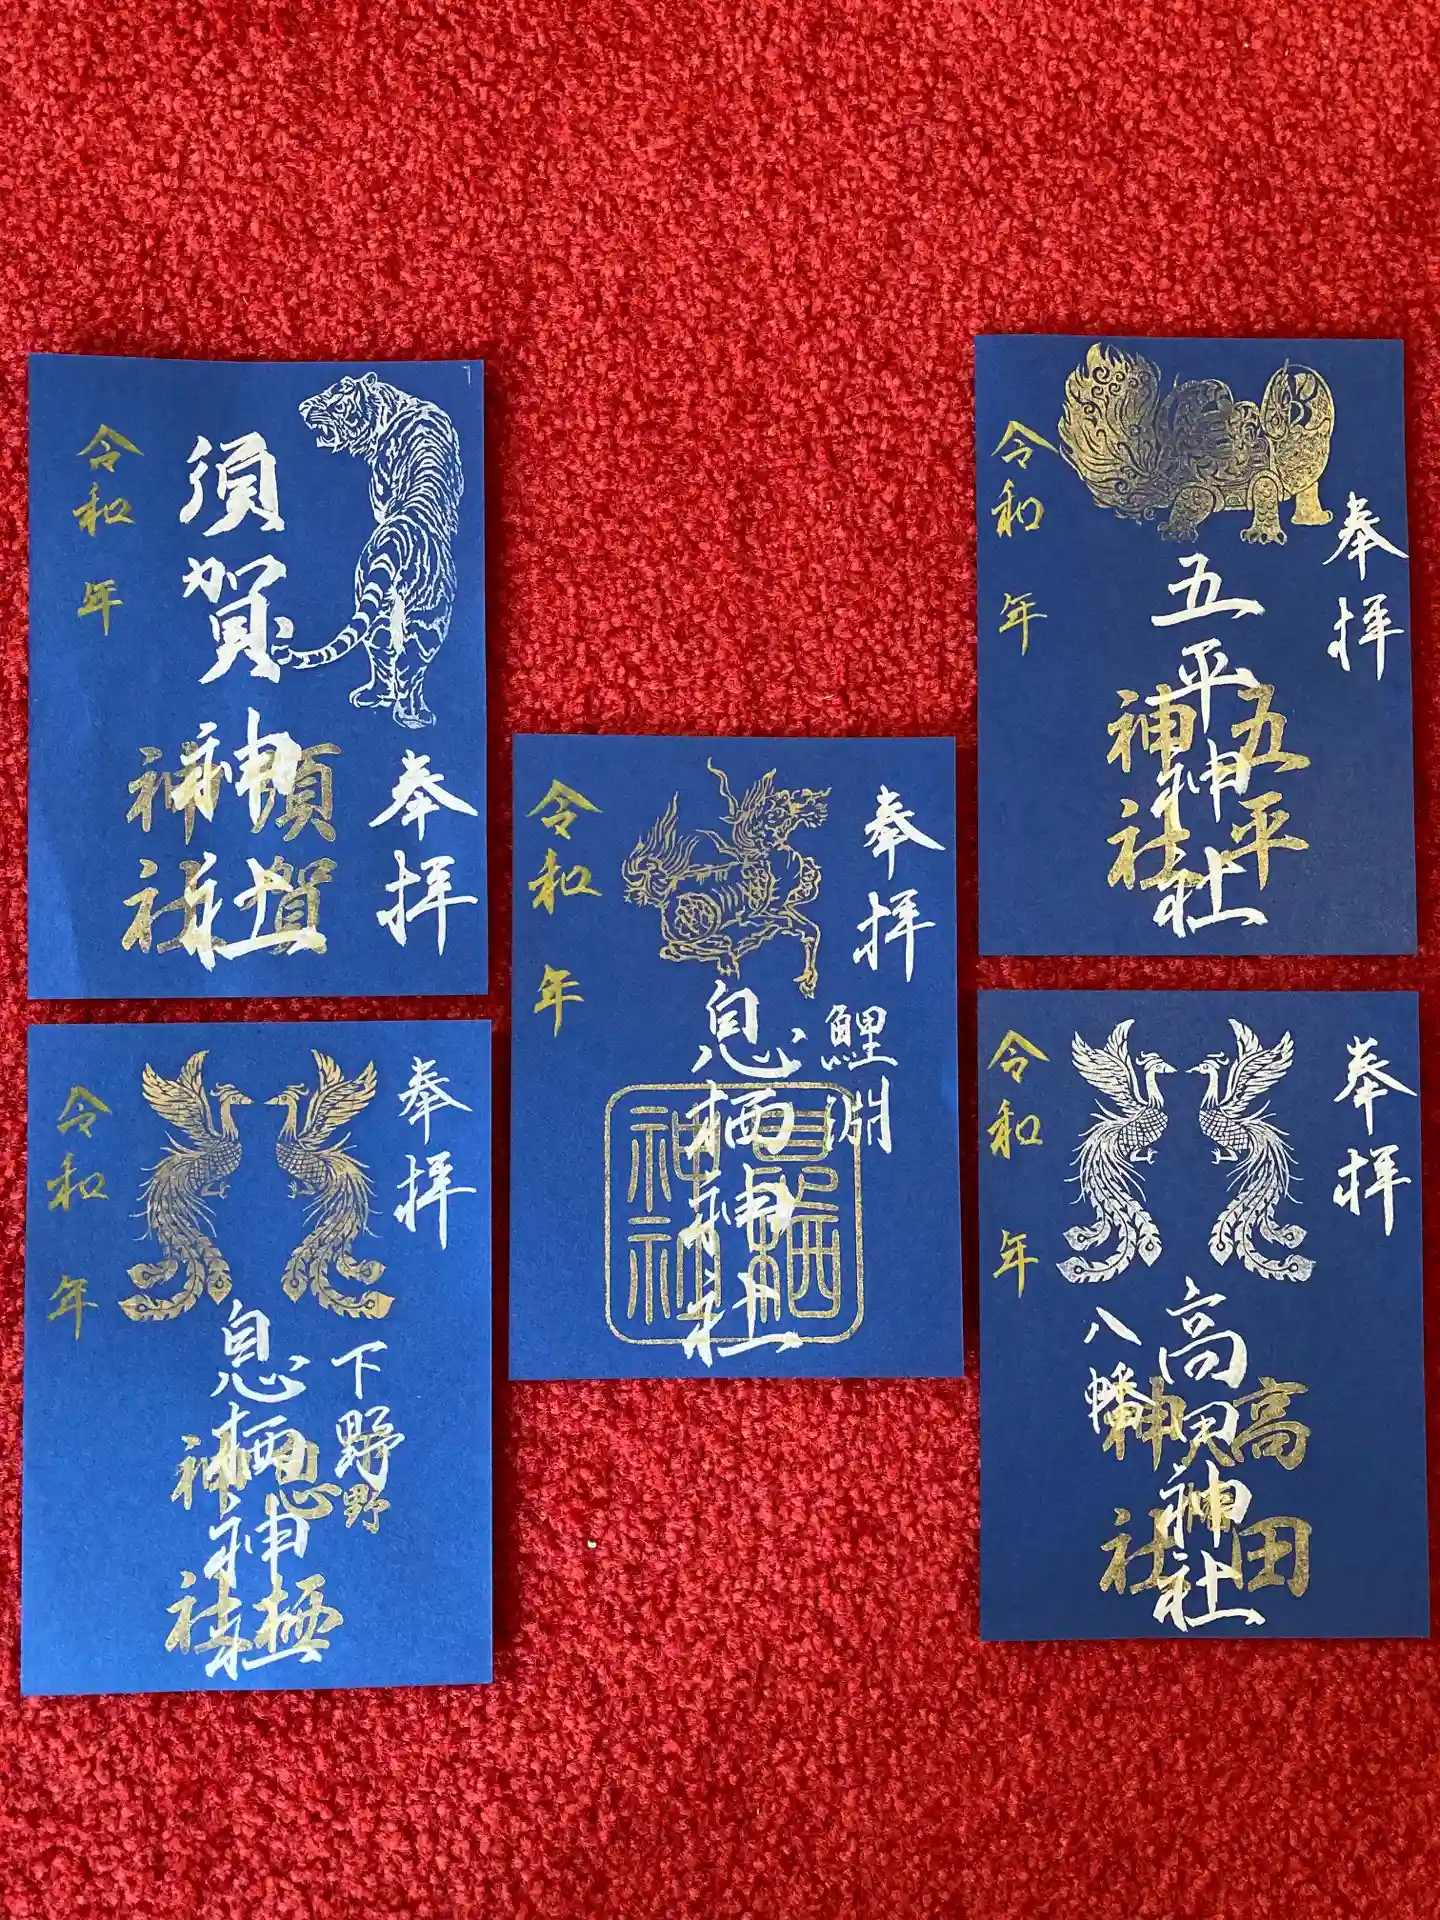 奉拝
須賀神社
須賀
神社
令和 年
奉拝
五平神社
五平
神社
令和 年
奉拝
鯉淵
息栖神社
息栖
神社
令和 年
奉拝
下野野
息栖神社
息栖
神社
令和 年
奉拝
高田神社
八幡
高田
神社
令和 年